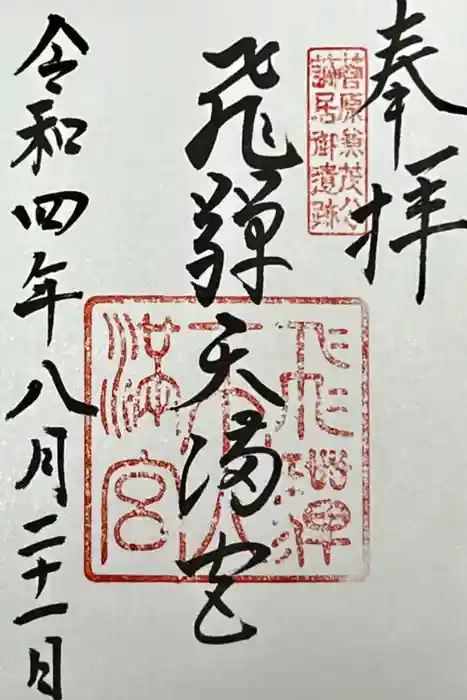 奉拝
菅原兼茂公
謫居御遺跡
飛騨天満宮
飛騨天満宮
令和四年八月二十一日